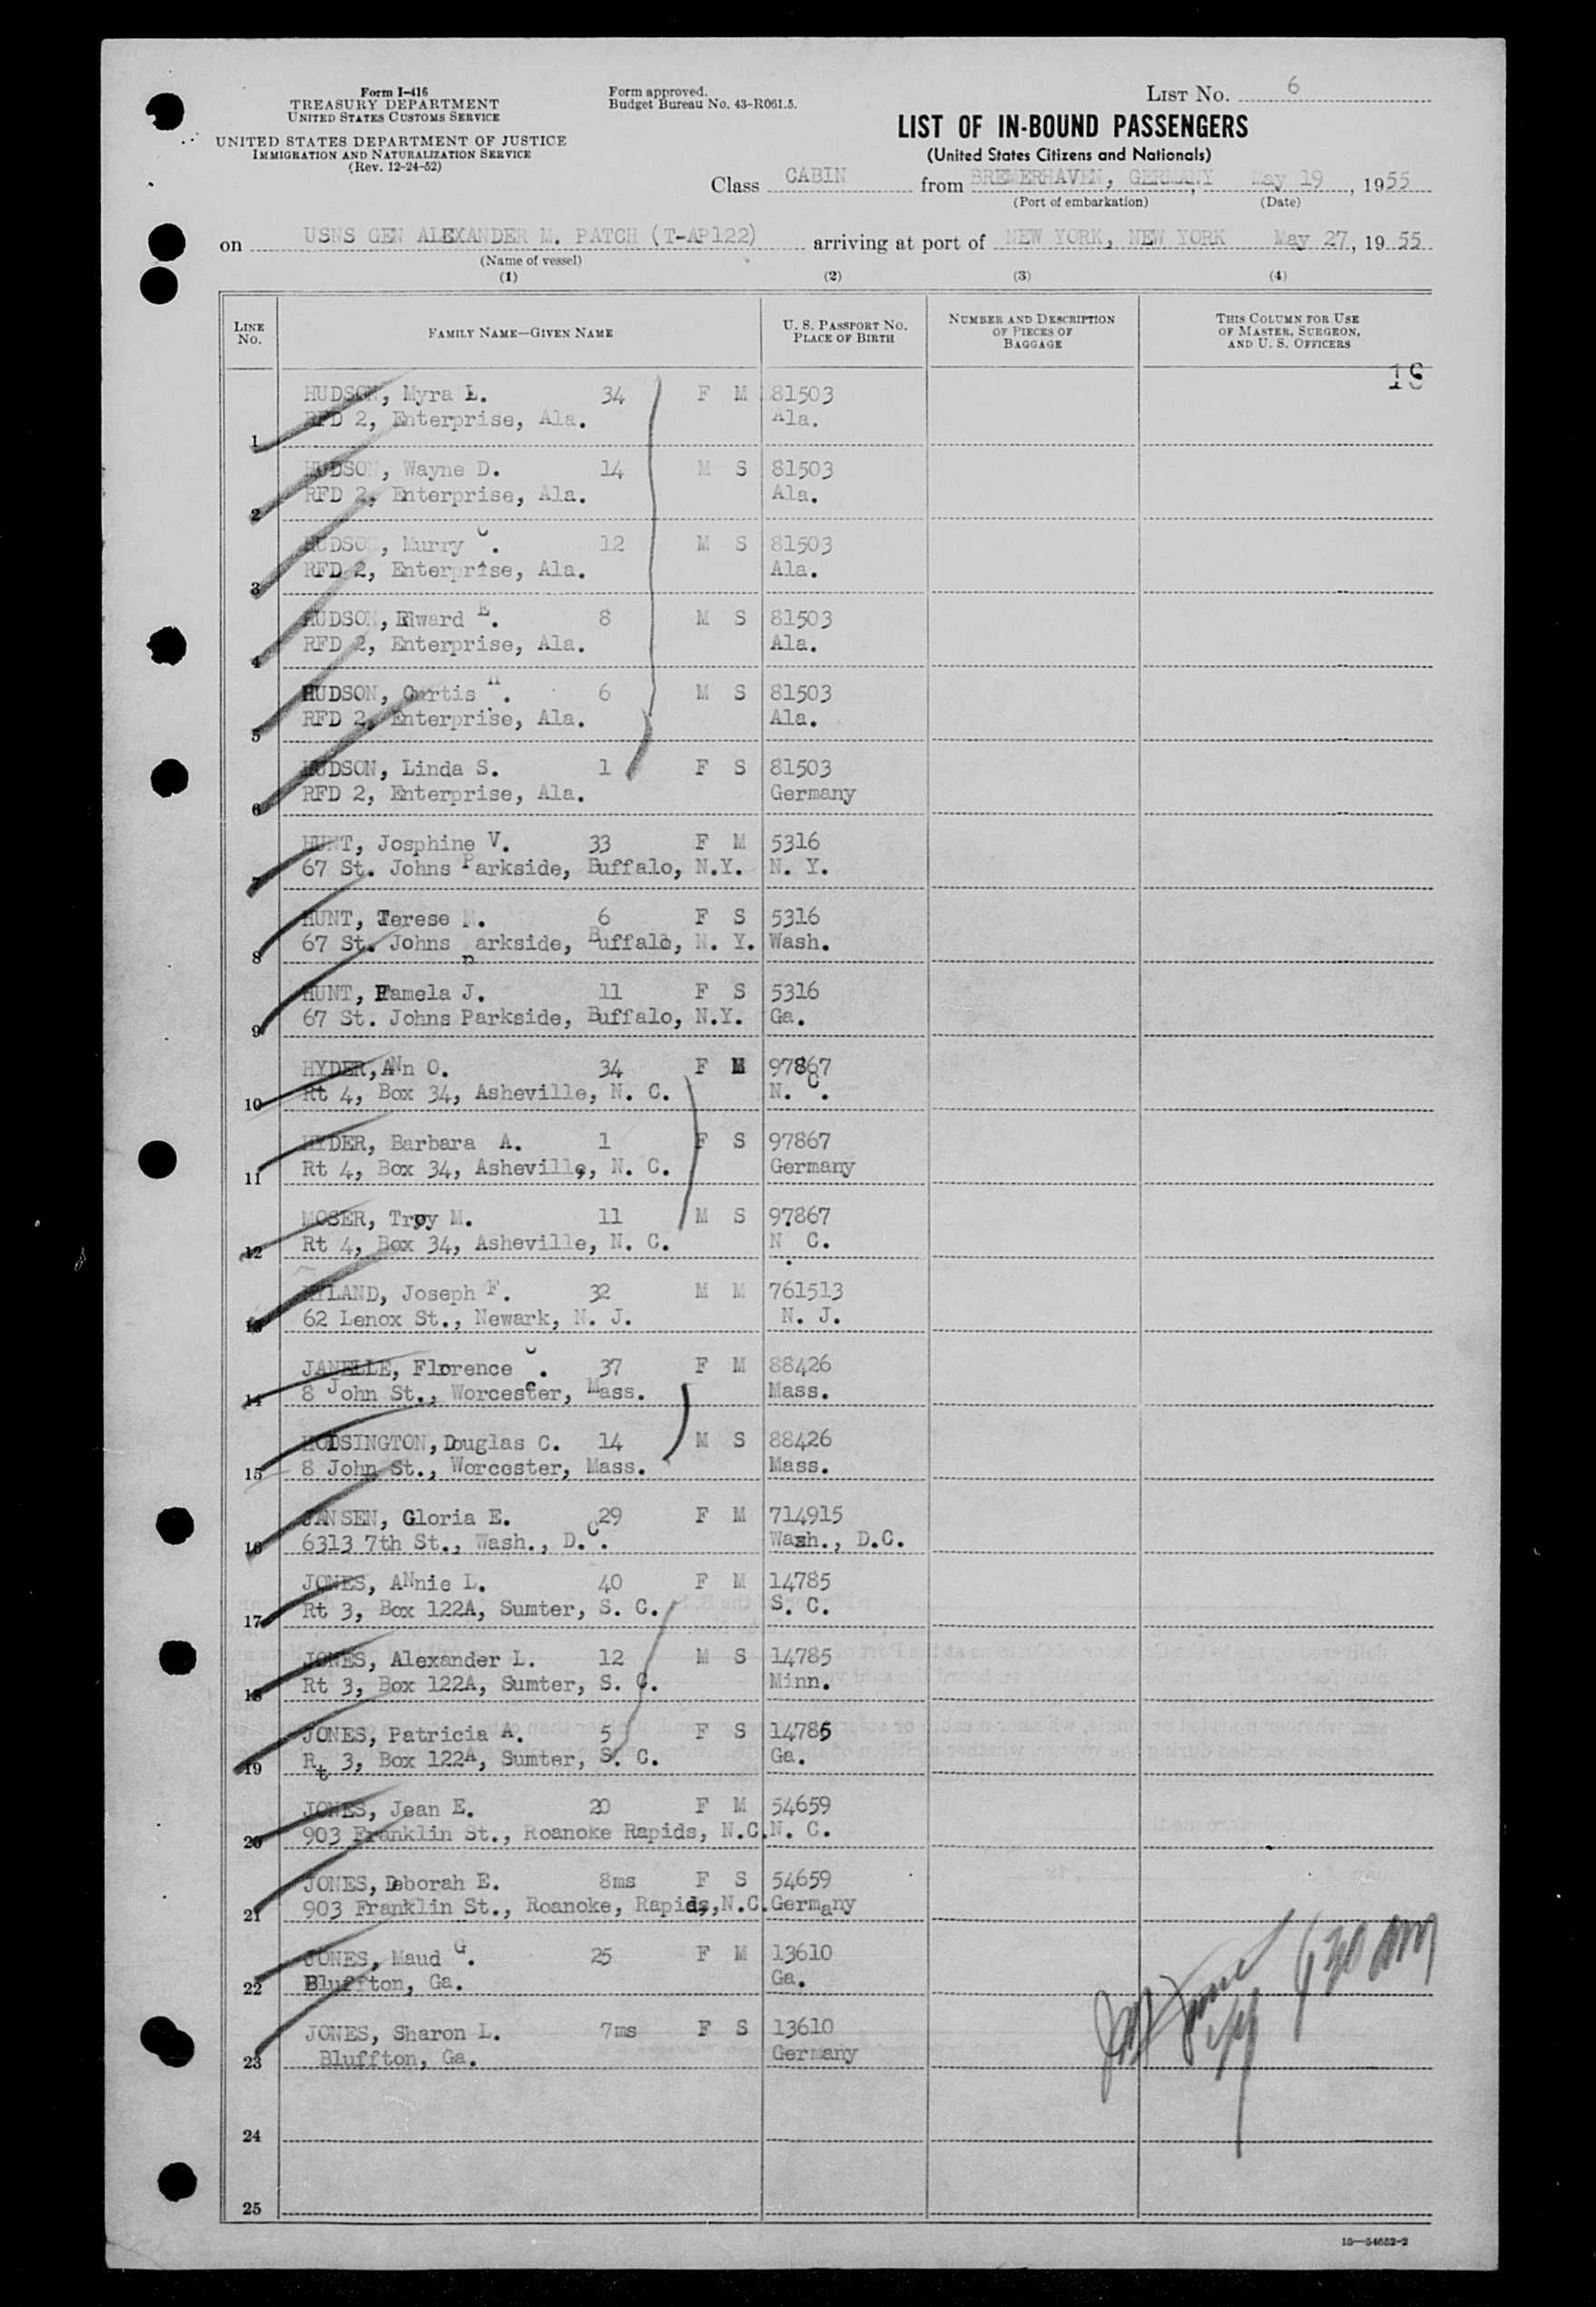 Form I-416
TREASURY DEPARTMENT
UNITED STATES CUSTOMS SERVICE
UNITED STATES DEPARTMENT OF JUSTICE
IMMIGRATION AND NATURALIZATION SERVICE
(Rev. 12-24-52)
Form approved.
Budget Bureau No. 43-R061.5.
LIST NO. 6
LIST OF IN-BOUND PASSENGERS
(United States Citizens and Nationals)
Class CABIN from BREMERHAVEN, GERMANY, May 19, 1955
(Port of embarkation) (Date)
on USNS GEN ALEXANDER M. PATCH (T-AP122) arriving at port of NEW YORK, NEW YORK May 27, 1955
(Name of vessel)
(1) (2) (3) (4)
LINE NO. FAMILY NAME—GIVEN NAME U. S. PASSPORT NO. PLACE OF BIRTH NUMBER AND DESCRIPTION OF PIECES OF BAGGAGE THIS COLUMN FOR USE OF MASTER, SURGEON, AND U. S. OFFICERS
HUDSON, Myra L. 34 F M 81503
1 RFD 2, Enterprise, Ala. Ala.
HUDSON, Wayne D. 14 M S 81503
2 RFD 2, Enterprise, Ala. Ala.
HUDSON, Murry C. 12 M S 81503
3 RFD 2, Enterprise, Ala. Ala.
HUDSON, Edward E. 8 M S 81503
4 RFD 2, Enterprise, Ala. Ala.
HUDSON, Curtis 6 M S 81503
5 RFD 2, Enterprise, Ala. Ala.
HUDSON, Linda S. 1 F S 81503
6 RFD 2, Enterprise, Ala. Germany
HUNT, Josphine V. 33 F M 5316
7 67 St. Johns Parkside, Buffalo, N.Y. N. Y.
HUNT, Terese M. 6 F S 5316
8 67 St. Johns Parkside, Buffalo, N. Y. Wash.
HUNT, Pamela J. 11 F S 5316
9 67 St. Johns Parkside, Buffalo, N.Y. Ga.
HYDER, ANn O. 34 F M 97867
10 Rt 4, Box 34, Asheville, N. C. N. C.
HYDER, Barbara A. 1 F S 97867
11 Rt 4, Box 34, Asheville, N. C. Germany
MOSER, Troy M. 11 M S 97867
12 Rt 4, Box 34, Asheville, N. C. N. C.
HYLAND, Joseph F. 32 M M 761513
13 62 Lenox St., Newark, N. J. N. J.
JANELLE, Florence C. 37 F M 88426
14 8 John St., Worcester, Mass. Mass.
HODSINGTON, Douglas C. 14 M S 88426
15 8 John St., Worcester, Mass. Mass.
JANSEN, Gloria E. 29 F M 714915
16 6313 7th St., Wash., D. C. Wash., D.C.
JONES, ANnie L. 40 F M 14785
17 Rt 3, Box 122A, Sumter, S. C. S. C.
JONES, Alexander L. 12 M S 14785
18 Rt 3, Box 122A, Sumter, S. C. Minn.
JONES, Patricia A. 5 F S 14785
19 Rt 3, Box 122A, Sumter, S. C. Ga.
JONES, Jean E. 20 F M 54659
20 903 Franklin St., Roanoke Rapids, N.C. N. C.
JONES, Deborah E. 8ms F S 54659
21 903 Franklin St., Roanoke, Rapids, N.C. Germany
JONES, Maud G. 25 F M 13610
22 Bluffton, Ga. Ga.
JONES, Sharon L. 7ms F S 13610
23 Bluffton, Ga. Germany
24
25
16—54652-2